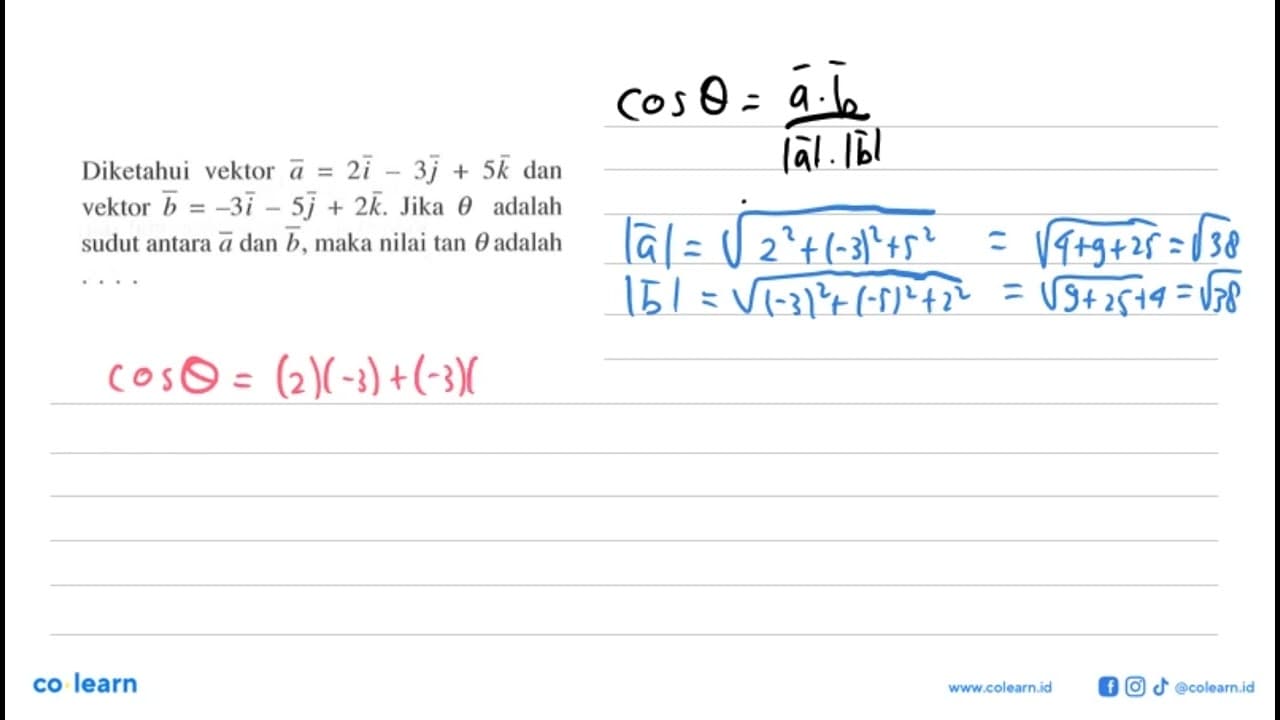 Diketahui vektor a̅ = 2i̅ − 3j̅ + 5k̅ dan
vektor b̅ = −3i̅ − 5j̅ + 2k̅. Jika θ adalah
sudut antara a̅ dan b̅, maka nilai tan θ adalah
. . . .
cos θ = a̅ . b̅
|a̅| . |b̅|
|a̅| = √(2² + (-3)² + 5²) = √(4+9+25) = √38
|b̅| = √((-3)² + (-5)² + 2²) = √(9+25+4) = √38
cos θ = (2)(-3) + (-3)(
co learn
www.colearn.id
@colearn.id